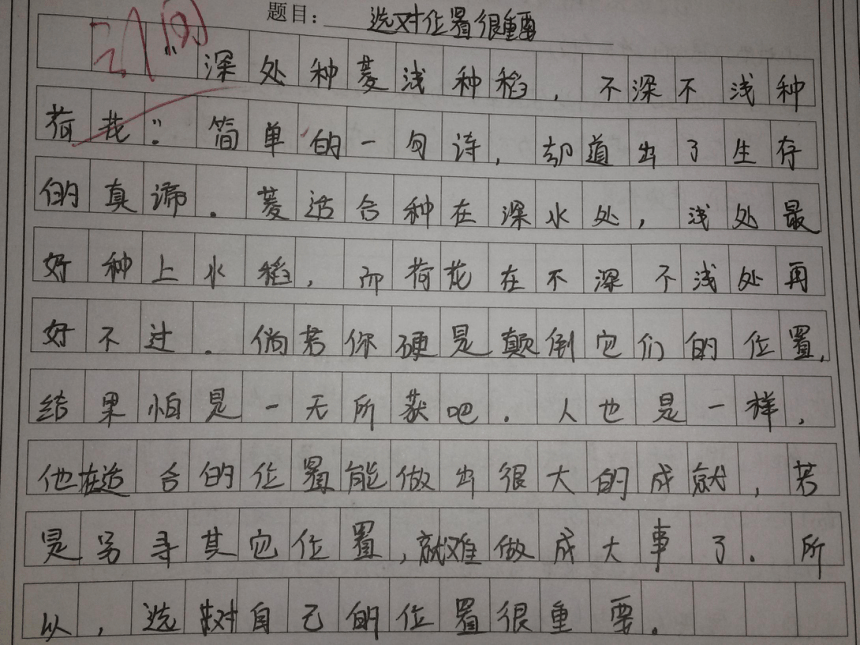 题目：选对位置很重要
“深处种菱浅种稻，不深不浅种
荷花”。简单的一句诗，却道出了生存
的真谛。菱适合种在深水处，浅处最
好种上水稻，而荷花在不深不浅处再
好不过。倘若你硬是颠倒它们的位置，
结果怕是一无所获吧。人也是一样，
他在适合的位置能做出很大的成就，若
是另寻其它位置，就难做成大事了。所
以，选对自己的位置很重要。